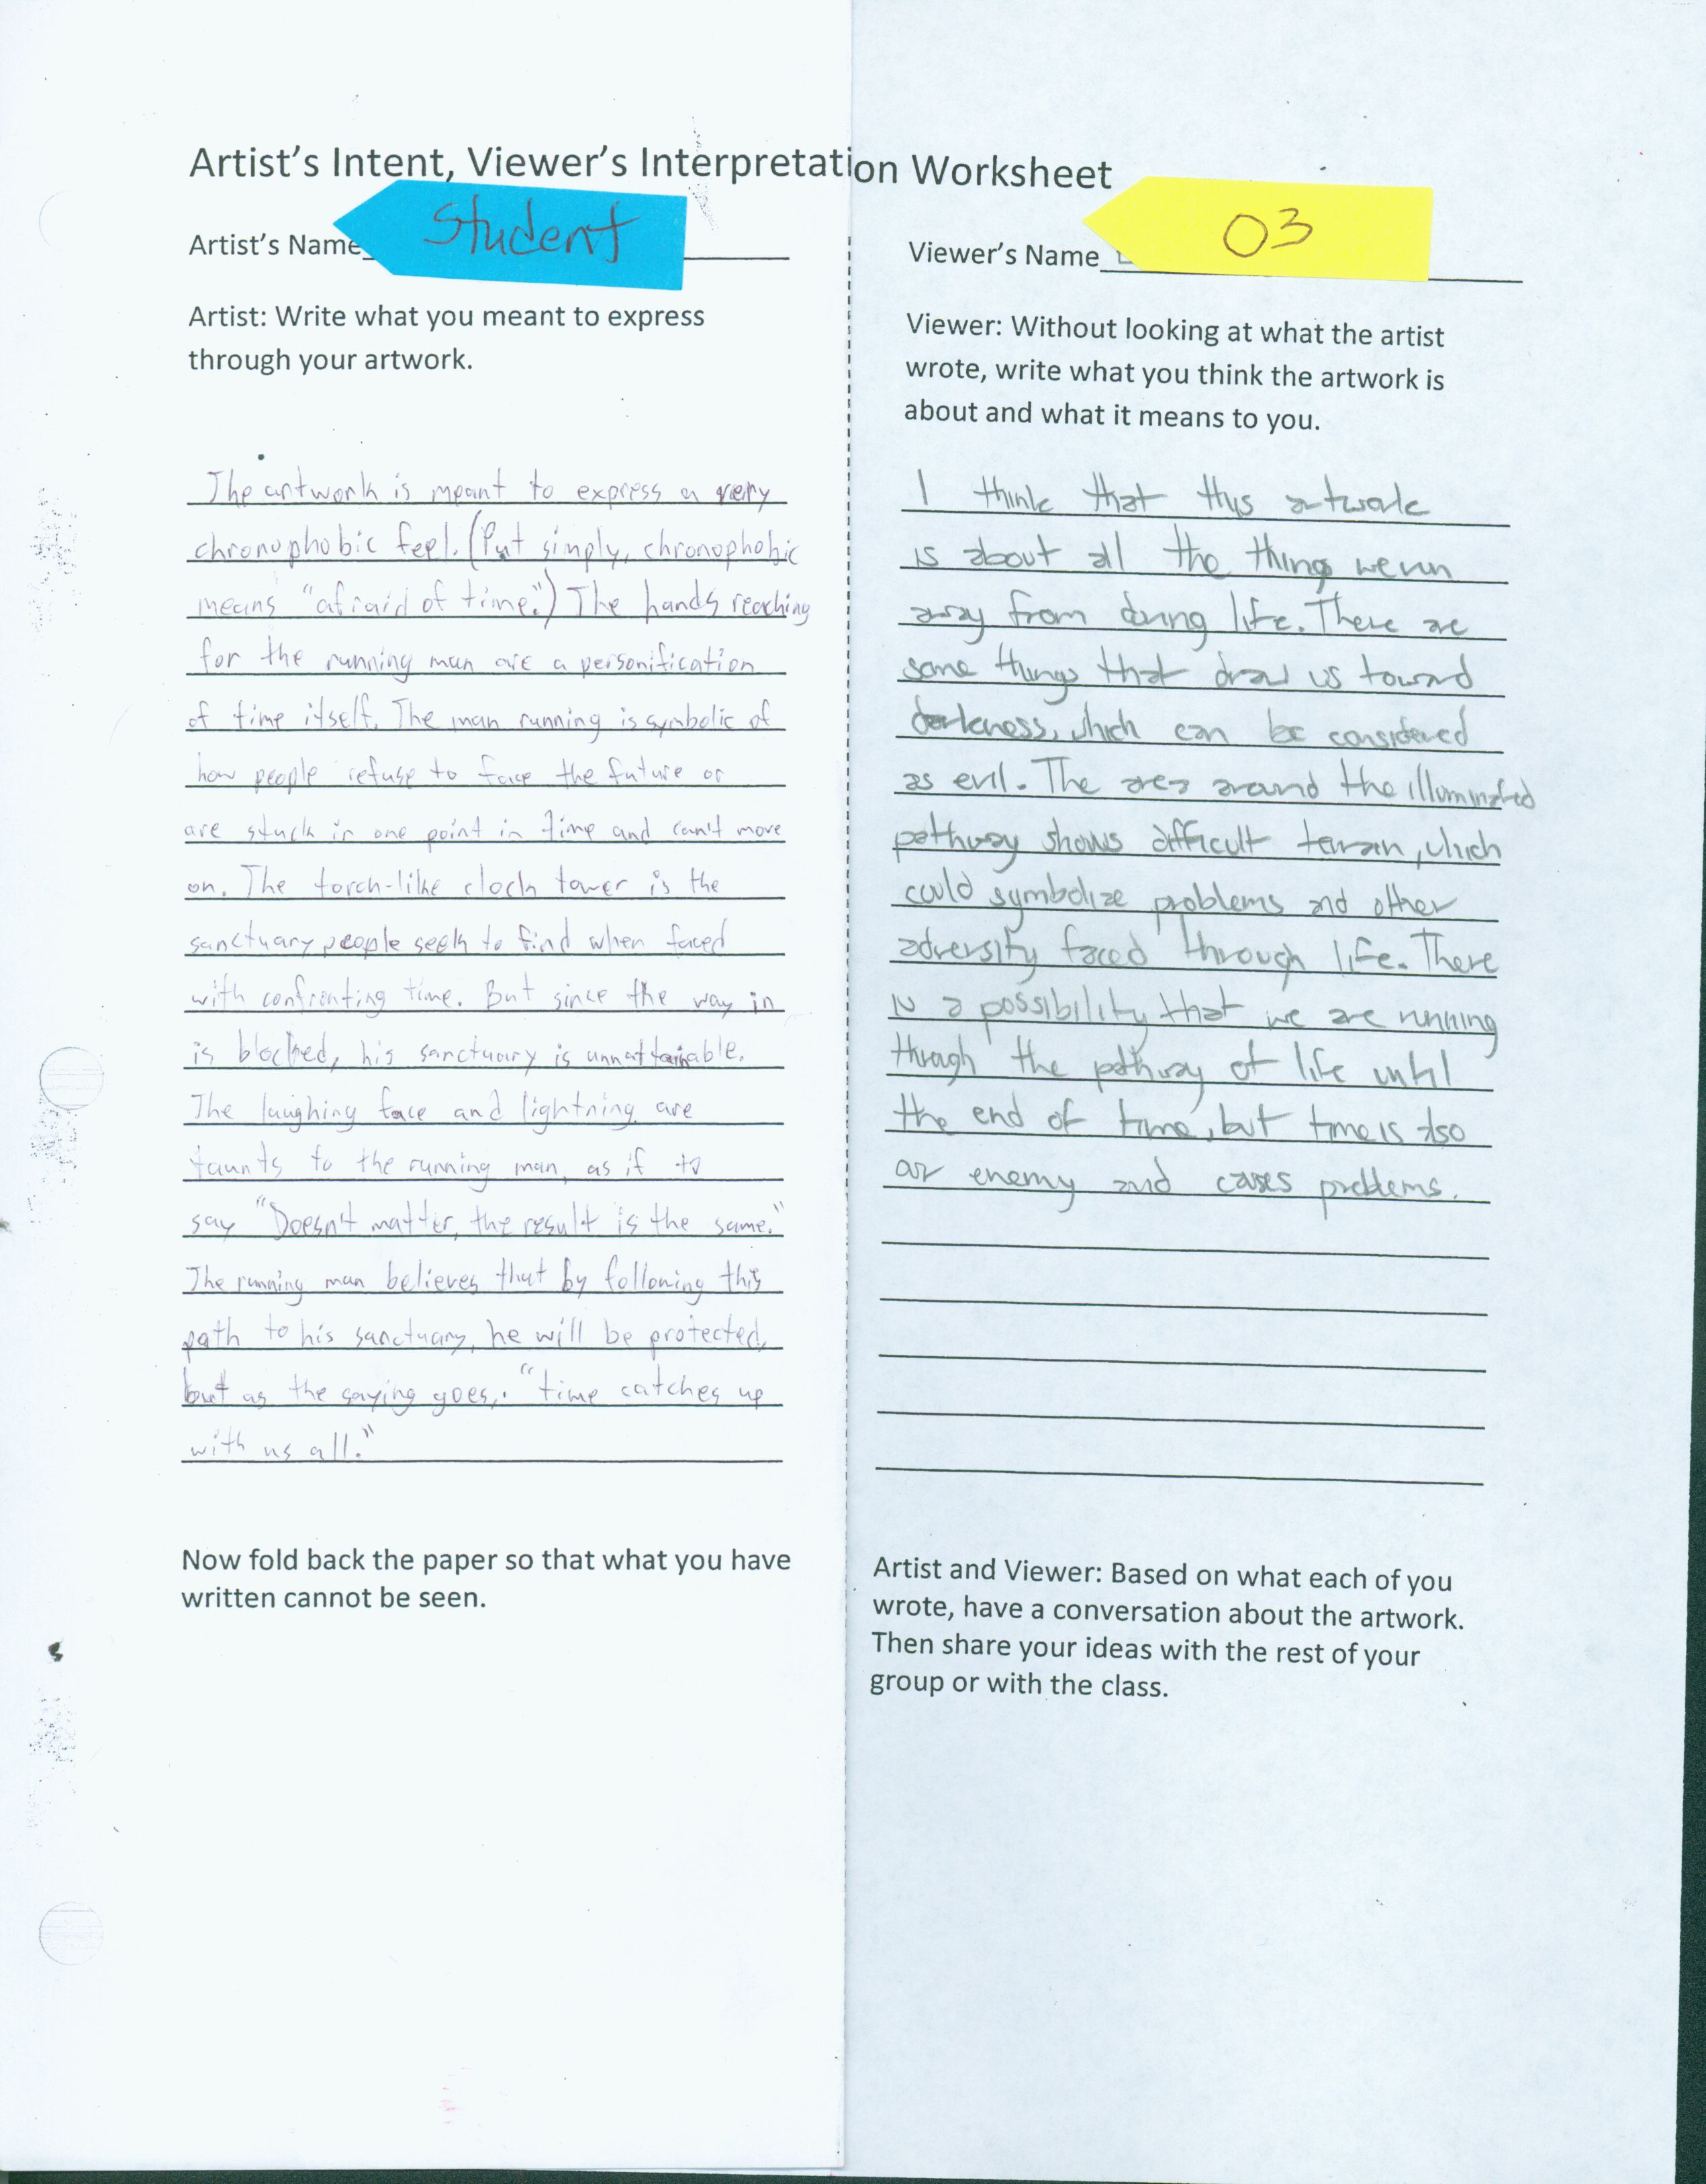 Artist's Intent, Viewer's Interpretation Worksheet
Artist's Name
Student
Artist: Write what you meant to express
through your artwork.
The artwork is meant to express a very
chronophobic feel. (Put simply, chronophobic
means "afraid of time.") The hands reaching
for the running man are a personification
of time itself. The man running is symbolic of
how people refuse to face the future or
are stuck in one point in time and can't move
on. The torch-like clock tower is the
sanctuary people seek to find when faced
with confronting time. But since the way in
is blocked, his sanctuary is unnattainable.
The laughing face and lightning are
taunts to the running man, as if to
say "Doesn't matter, the result is the same."
The running man believes that by following this
path to his sanctuary, he will be protected,
but as the saying goes, "time catches up
with us all."
Now fold back the paper so that what you have
written cannot be seen.
Viewer's Name
03
Viewer: Without looking at what the artist
wrote, write what you think the artwork is
about and what it means to you.
I think that this artwork
is about all the things we run
away from during life. There are
some things that draw us toward
darkness, which can be considered
as evil. The area around the illuminated
pathway shows difficult terrain, which
could symbolize problems and other
adversity faced through life. There
is a possibility that we are running
through the pathway of life until
the end of time, but time is also
our enemy and causes problems.
Artist and Viewer: Based on what each of you
wrote, have a conversation about the artwork.
Then share your ideas with the rest of your
group or with the class.